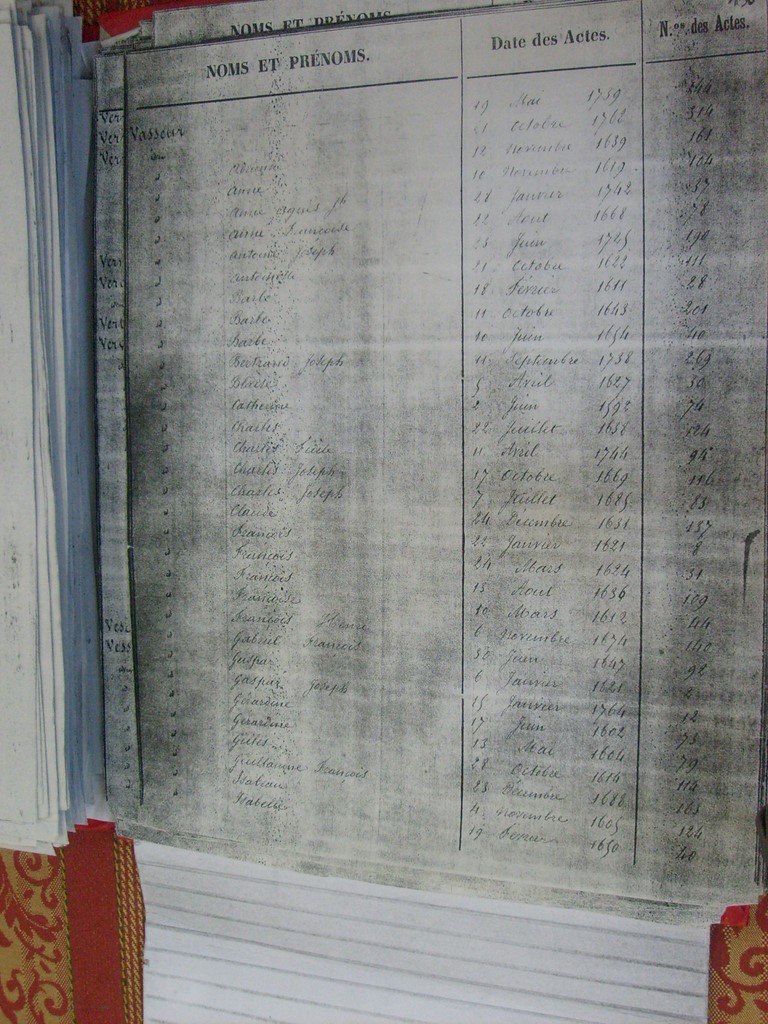 NOMS ET PRÉNOMS.
NOMS ET PRÉNOMS.
Date des Actes.
N.os des Actes.
Ver
Ver
Ver
Vern
Vero
Vert
Verv
Vese
Vess
Vasseur
Anne
Anne Agnès Jh
Anne Francoise
Antoine Joseph
Antoinette
Barbe
Barbe
Barbe
Bertrand Joseph
Blaise
Catherine
Charles
Charles Fidèle
Charles Joseph
Charles Joseph
Claude
François
François
François
Françoise
François Henri
Gabriel François
Gaspar
Gaspar Joseph
Gerardine
Gerardine
Gilles
Guillaume François
Isabeau
Isabelle
19 Mai 1759 144
21 Octobre 1762 314
12 Novembre 1639 161
10 Novembre 1619 104
28 Janvier 1742 37
22 Aout 1668 78
23 Juin 1725 190
21 Octobre 1622 111
18 Février 1611 28
11 Octobre 1643 201
10 Juin 1654 40
11 Septembre 1738 269
5 Avril 1627 30
2 Juin 1592 74
22 Juillet 1638 124
11 Avril 1744 94
17 Octobre 1669 116
7 Juillet 1685 83
24 Décembre 1631 157
22 Janvier 1621 8
24 Mars 1624 51
15 Aout 1636 109
10 Mars 1612 44
6 Novembre 1674 140
30 Juin 1647 92
6 Janvier 1621 2
15 Janvier 1764 12
17 Juin 1602 75
13 Mai 1604 79
28 Octobre 1614 114
23 Décembre 1688 163
4 Novembre 1605 124
19 Fevrier 1650 40